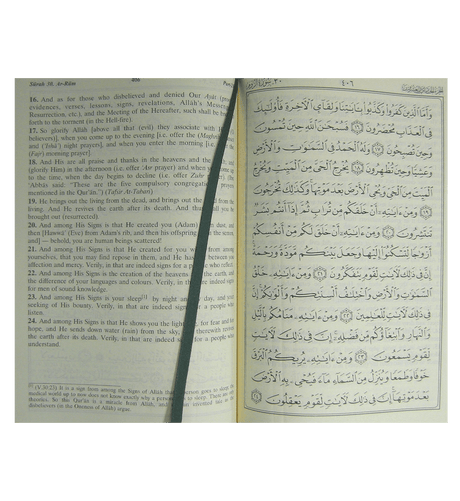 Sûrah 30. Ar-Rûm
16. And as for those who disbelieved and denied Our Ayât (proofs,
evidences, verses, lessons, signs, revelations, Allâh's Messengers,
Resurrection, etc.), and the Meeting of the Hereafter, such shall be brought
forth to the torment (in the Hell-fire).
17. So glorify Allâh [above all that (evil) they associate with
believers)], when you come up to the evening [i.e. offer the (Maghrib)
and ('Ishâ') night prayers], and when you enter the morning [i.e. offer the
(Fajr) morning prayer].
18. And His are all praise and thanks in the heavens and the earth; and
(glorify Him) in the afternoon (i.e. offer 'Asr prayer) and when you come up
to the time, when the day begins to decline (i.e. offer Zuhr prayer).
'Abbâs said: "These are the five compulsory congregational prayers
mentioned in the Qur'ân." (Tafsir At-Tabari)
19. He brings out the living from the dead, and brings out the dead from the
living. And He revives the earth after its death. And thus shall you be
brought out (resurrected).
20. And among His Signs is that He created you (Adam) from dust, and
then [Hawwâ' (Eve) from Adam's rib, and then his offspring from the
and] — behold, you are human beings scattered!
21. And among His Signs is that He created for you wives from among
yourselves, that you may find repose in them, and He has put between you
affection and mercy. Verily, in that are indeed signs for a people who reflect.
22. And among His Signs is the creation of the heavens and the earth, and
the difference of your languages and colours. Verily, in that are indeed signs
for men of sound knowledge.
23. And among His Signs is your sleep[1] by night and by day, and your
seeking of His Bounty. Verily, in that are indeed signs for a people who
listen.
24. And among His Signs is that He shows you the lightning, for fear and for
hope, and He sends down water (rain) from the sky, and therewith revives
the earth after its death. Verily, in that are indeed signs for a people who
understand.
[1] (V.30:23) It is a sign from among the Signs of Allâh that a person goes to sleep,
medical world up to now does not know exactly why a person goes to sleep.
theories. So the Qur'ân is a miracle from Allâh, and
disbelievers (in the Oneness of Allâh) argue.
٤٠٦
وَأَمَّا الَّذِينَ كَفَرُوا وَكَذَّبُوا بِآيَاتِنَا وَلِقَاءِ الْآخِرَةِ فَأُولَٰئِكَ
فِي الْعَذَابِ مُحْضَرُونَ ١٦ فَسُبْحَانَ اللَّهِ حِينَ تُمْسُونَ
وَحِينَ تُصْبِحُونَ ١٧ وَلَهُ الْحَمْدُ فِي السَّمَاوَاتِ وَالْأَرْضِ
وَعَشِيًّا وَحِينَ تُظْهِرُونَ ١٨ يُخْرِجُ الْحَيَّ مِنَ الْمَيِّتِ وَيُخْرِجُ
الْمَيِّتَ مِنَ الْحَيِّ وَيُحْيِ الْأَرْضَ بَعْدَ مَوْتِهَا وَكَذَٰلِكَ تُخْرَجُونَ
١٩ وَمِنْ آيَاتِهِ أَنْ خَلَقَكُمْ مِنْ تُرَابٍ ثُمَّ إِذَا أَنْتُمْ بَشَرٌ
تَنْتَشِرُونَ ٢٠ وَمِنْ آيَاتِهِ أَنْ خَلَقَ لَكُمْ مِنْ أَنْفُسِكُمْ
أَزْوَاجًا لِتَسْكُنُوا إِلَيْهَا وَجَعَلَ بَيْنَكُمْ مَوَدَّةً وَرَحْمَةً
إِنَّ فِي ذَٰلِكَ لَآيَاتٍ لِقَوْمٍ يَتَفَكَّرُونَ ٢١ وَمِنْ آيَاتِهِ خَلْقُ
السَّمَاوَاتِ وَالْأَرْضِ وَاخْتِلَافُ أَلْسِنَتِكُمْ وَأَلْوَانِكُمْ إِنَّ
فِي ذَٰلِكَ لَآيَاتٍ لِلْعَالِمِينَ ٢٢ وَمِنْ آيَاتِهِ مَنَامُكُمْ بِاللَّيْلِ
وَالنَّهَارِ وَابْتِغَاؤُكُمْ مِنْ فَضْلِهِ إِنَّ فِي ذَٰلِكَ لَآيَاتٍ
لِقَوْمٍ يَسْمَعُونَ ٢٣ وَمِنْ آيَاتِهِ يُرِيكُمُ الْبَرْقَ
خَوْفًا وَطَمَعًا وَيُنَزِّلُ مِنَ السَّمَاءِ مَاءً فَيُحْيِي بِهِ الْأَرْضَ
بَعْدَ مَوْتِهَا إِنَّ فِي ذَٰلِكَ لَآيَاتٍ لِقَوْمٍ يَعْقِلُونَ ٢٤